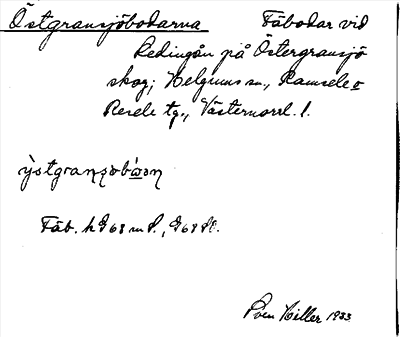 Östgransjöbodarna Fäbodar vid
Redingån på Östergransjö
skog; Helgums sn, Ramsele o
Resele tg., Västernorrl. l.
Fäb. h G 68 m
Sven Hiller 1933